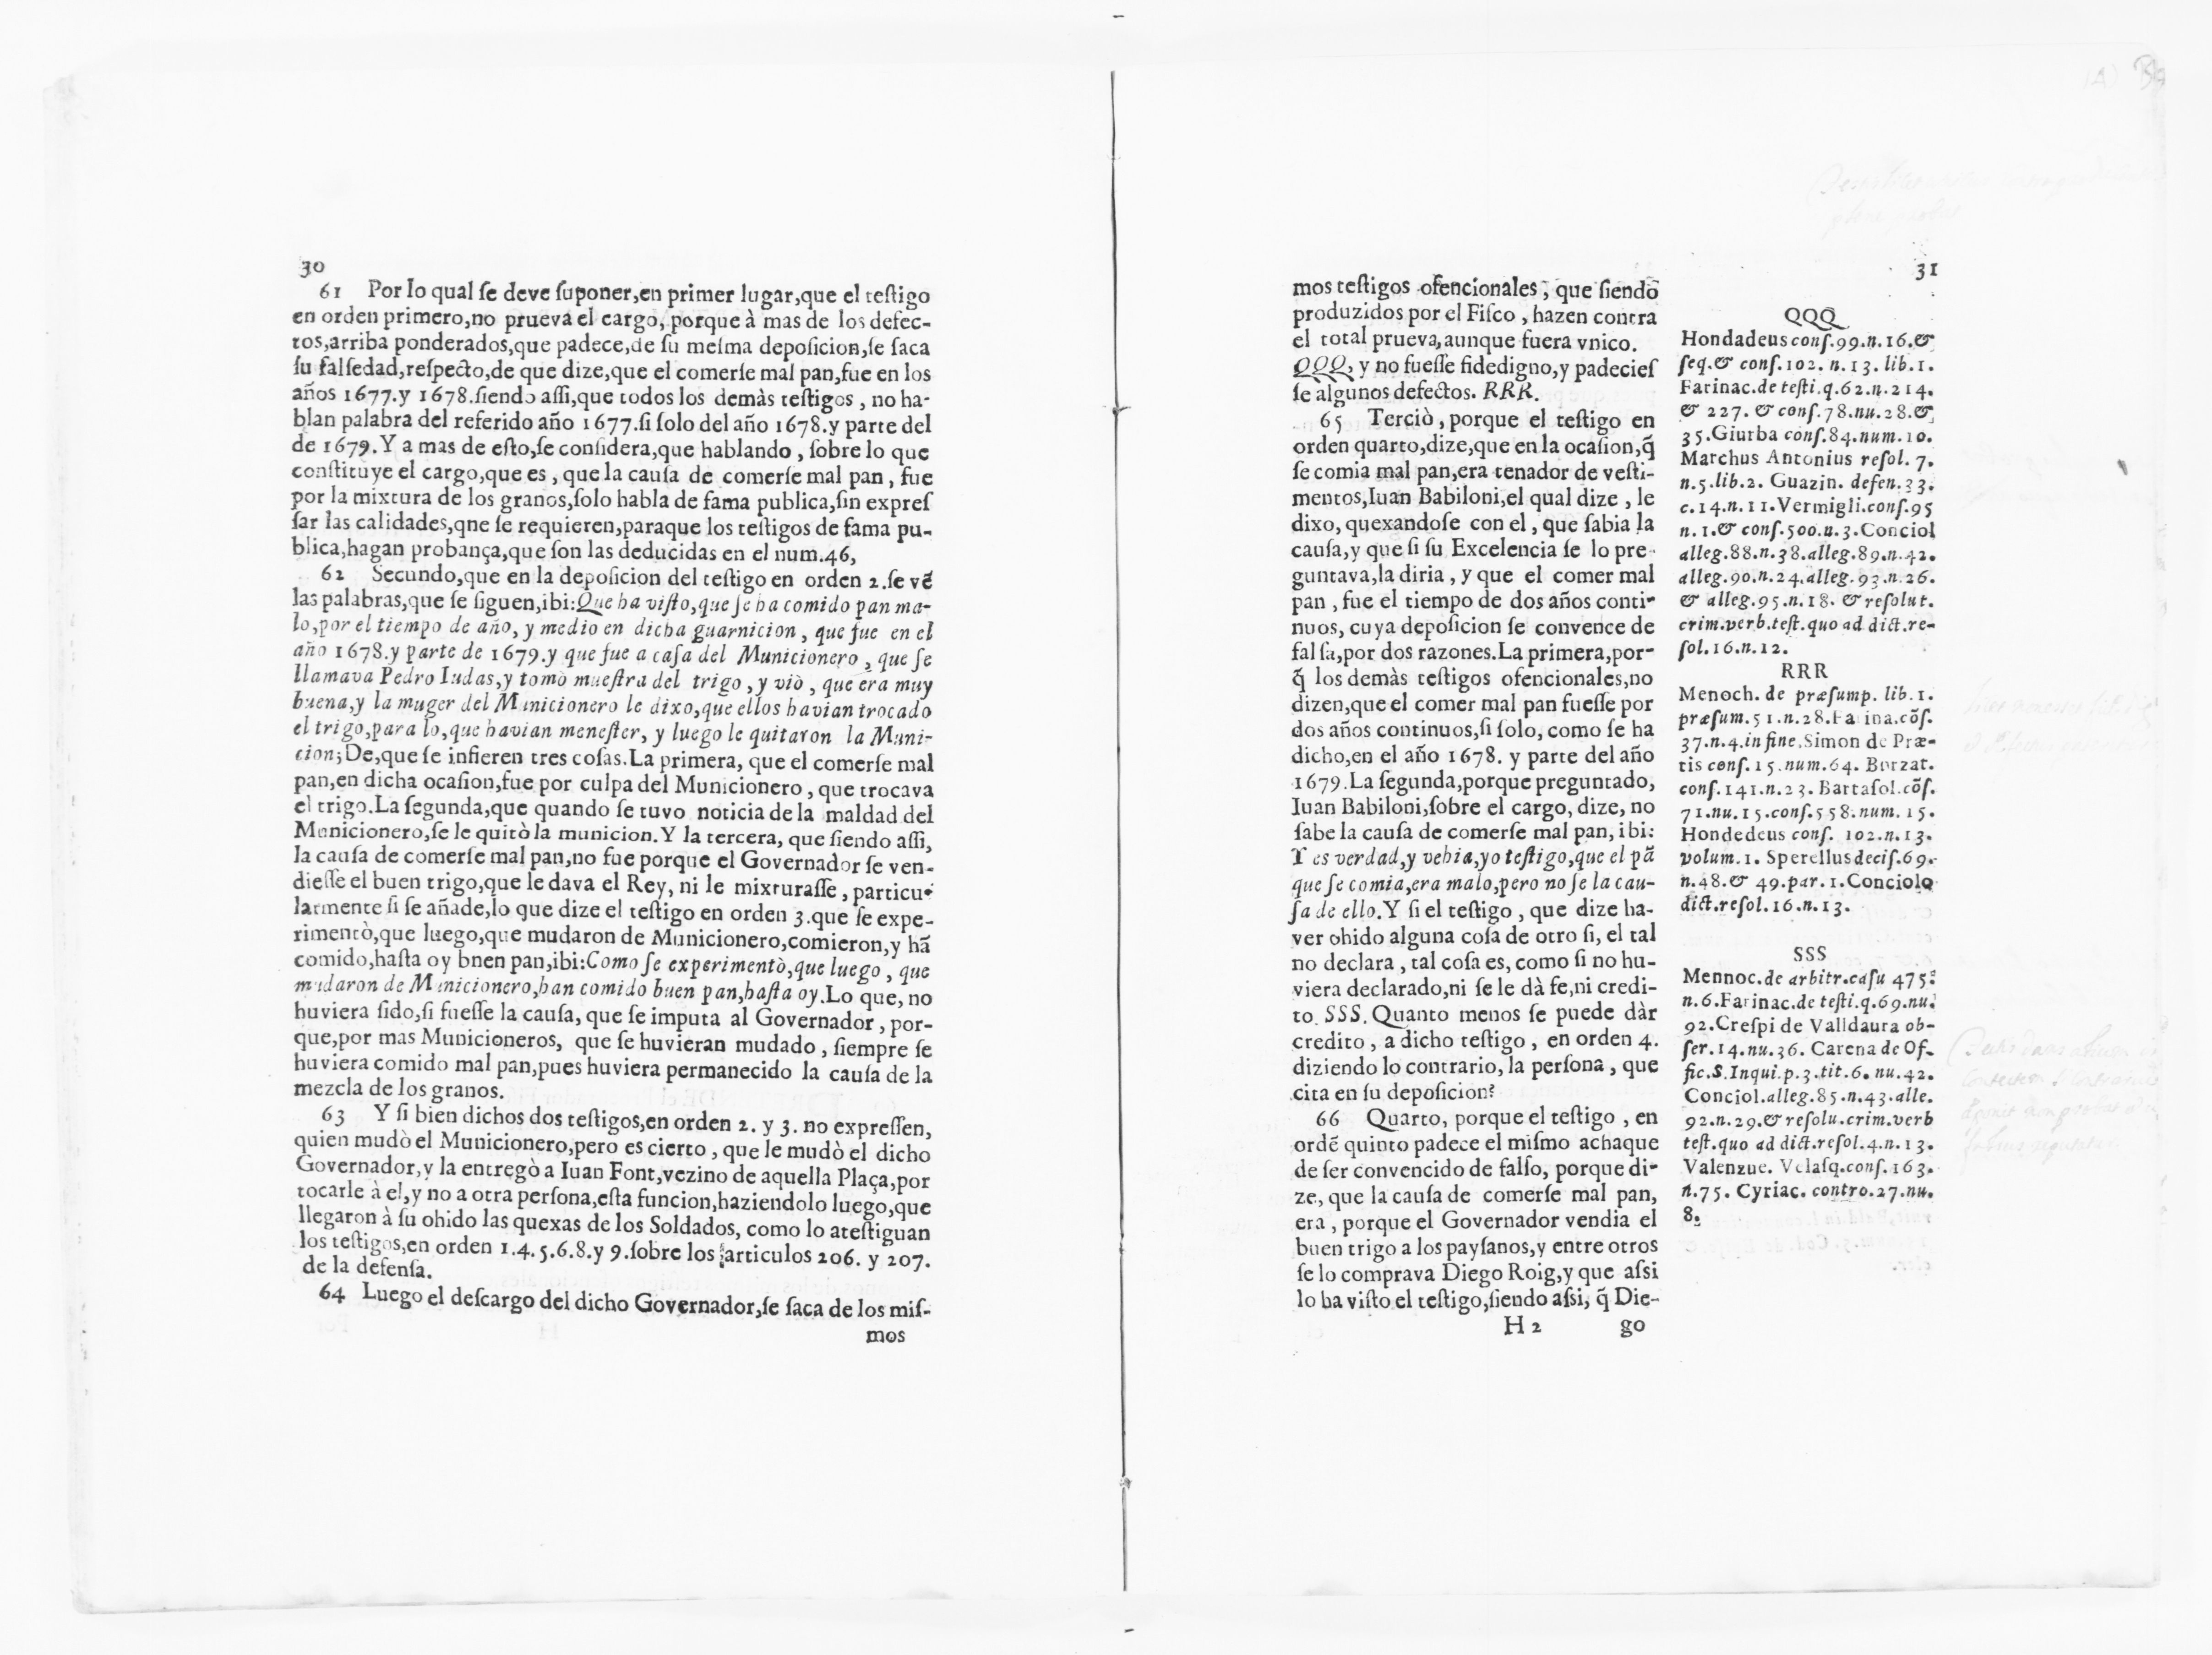 30
61 Por lo qual ſe deve ſuponer,en primer lugar,que el teſtigo
en orden primero,no prueva el cargo, porque à mas de los defec-
tos,arriba ponderados,que padece,de ſu meſma depoſicion,ſe ſaca
ſu falſedad,reſpecto,de que dize,que el comerſe mal pan,fue en los
años 1677.y 1678.ſiendo aſſi,que todos los demàs teſtigos , no ha-
blan palabra del referido año 1677.ſi ſolo del año 1678.y parte del
de 1679.Y a mas de eſto,ſe conſidera,que hablando , ſobre lo que
conſtituye el cargo,que es , que la cauſa de comerſe mal pan , fue
por la mixtura de los granos,ſolo habla de fama publica,ſin expreſ
ſar las calidades,qne ſe requieren,paraque los teſtigos de fama pu-
blica,hagan probança,que ſon las deducidas en el num.46,
62 Secundo,que en la depoſicion del teſtigo en orden 2.ſe vẽ
las palabras,que ſe ſiguen,ibi:Que ha viſto,que ſe ha comido pan ma-
lo,por el tiempo de año, y medio en dicha guarnicion , que fue en el
año 1678.y parte de 1679.y que fue a caſa del Municionero , que ſe
llamava Pedro Iudas,y tomò mueſtra del trigo , y viò , que era muy
buena,y la muger del Municionero le dixo,que ellos havian trocado
el trigo,para lo,que havian meneſter, y luego le quitaron la Muni-
cion;De,que ſe infieren tres coſas.La primera, que el comerſe mal
pan,en dicha ocaſion,fue por culpa del Municionero , que trocava
el trigo.La ſegunda,que quando ſe tuvo noticia de la maldad del
Municionero,ſe le quitò la municion. Y la tercera, que ſiendo aſſi,
la cauſa de comerſe mal pan,no fue porque el Governador ſe ven-
dieſſe el buen trigo,que le dava el Rey, ni le mixturaſſe , particu-
larmente ſi ſe añade,lo que dize el teſtigo en orden 3.que ſe expe-
rimentò,que luego,que mudaron de Municionero,comieron,y hã
comido,haſta oy bnen pan,ibi:Como ſe experimentò,que luego , que
mudaron de Municionero,han comido buen pan,haſta oy.Lo que, no
huviera ſido,ſi fueſſe la cauſa, que ſe imputa al Governador , por-
que,por mas Municioneros, que ſe huvieran mudado , ſiempre ſe
huviera comido mal pan,pues huviera permanecido la cauſa de la
mezcla de los granos.
63 Y ſi bien dichos dos teſtigos,en orden 2. y 3. no expreſſen,
quien mudò el Municionero,pero es cierto , que le mudò el dicho
Governador,y la entregò a Iuan Font,vezino de aquella Plaça,por
tocarle à el,y no a otra perſona,eſta funcion,haziendolo luego,que
llegaron à ſu ohido las quexas de los Soldados, como lo ateſtiguan
los teſtigos,en orden 1.4.5.6.8.y 9.ſobre los articulos 206. y 207.
de la defenſa.
64 Luego el deſcargo del dicho Governador,ſe ſaca de los miſ-
mos
31
mos teſtigos ofencionales , que ſiendõ
produzidos por el Fiſco , hazen contra
el total prueva,aunque fuera vnico.
QQQ, y no fueſſe fidedigno,y padecieſ
ſe algunos defectos. RRR.
65 Terciò , porque el teſtigo en
orden quarto,dize,que en la ocaſion,q̃
ſe comia mal pan,era tenador de veſti-
mentos,Iuan Babiloni,el qual dize , le
dixo, quexandoſe con el , que ſabia la
cauſa,y que ſi ſu Excelencia ſe lo pre-
guntava,la diria , y que el comer mal
pan , fue el tiempo de dos años conti-
nuos, cuya depoſicion ſe convence de
falſa,por dos razones.La primera,por-
q̃ los demàs teſtigos ofencionales,no
dizen,que el comer mal pan fueſſe por
dos años continuos,ſi ſolo, como ſe ha
dicho,en el año 1678. y parte del año
1679.La ſegunda,porque preguntado,
Iuan Babiloni,ſobre el cargo, dize, no
ſabe la cauſa de comerſe mal pan, ibi:
Y es verdad,y vehia,yo teſtigo,que el pã
que ſe comia,era malo,pero no ſe la cau-
ſa de ello.Y ſi el teſtigo , que dize ha-
ver ohido alguna coſa de otro ſi, el tal
no declara , tal coſa es, como ſi no hu-
viera declarado,ni ſe le dà fe,ni credi-
to. SSS. Quanto menos ſe puede dàr
credito , a dicho teſtigo , en orden 4.
diziendo lo contrario, la perſona , que
cita en ſu depoſicion?
66 Quarto, porque el teſtigo , en
ordẽ quinto padece el miſmo achaque
de ſer convencido de falſo, porque di-
ze, que la cauſa de comerſe mal pan,
era , porque el Governador vendia el
buen trigo a los payſanos,y entre otros
ſe lo comprava Diego Roig,y que aſsi
lo ha viſto el teſtigo,ſiendo aſsi, q̃ Die-
H 2 go
QQQ
Hondadeus conſ.99.n.16.&
ſeq.& conſ.102. n.13. lib.1.
Farinac.de teſti.q.62.n.214.
& 227. & conſ.78.nu.28.&
35.Giurba conſ.84.num.10.
Marchus Antonius reſol. 7.
n.5.lib.2. Guazin. defen.33.
c.14.n.11.Vermigli.conſ.95
n.1.& conſ.500.n.3.Conciol
alleg.88.n.38.alleg.89.n.42.
alleg.90.n.24.alleg.93.n.26.
& alleg.95.n.18. & reſolut.
crim.verb.teſt.quo ad dict.re-
ſol.16.n.12.
RRR
Menoch. de præſump. lib.1.
præſum.51.n.28.Farina.cõſ.
37.n.4.in fine.Simon de Præ-
tis conſ.15.num.64. Burzat.
conſ.141.n.23. Bartaſol.cõſ.
71.nu.15.conſ.558.num.15.
Hondedeus conſ. 102.n.13.
volum.1. Sperellus deciſ.69.
n.48.& 49.par.1.Conciolo
dict.reſol.16.n.13.
SSS
Mennoc.de arbitr.caſu 475.
n.6.Farinac.de teſti.q.69.nu.
92.Creſpi de Valldaura ob-
ſer.14.nu.36. Carena de Of-
fic.S.Inqui.p.3.tit.6.nu.42.
Conciol.alleg.85.n.43.alle.
92.n.29.& reſolu.crim.verb
teſt.quo ad dict.reſol.4.n.13.
Valenzue. Velaſq.conſ.163.
n.75. Cyriac. contro.27.nu.
8.